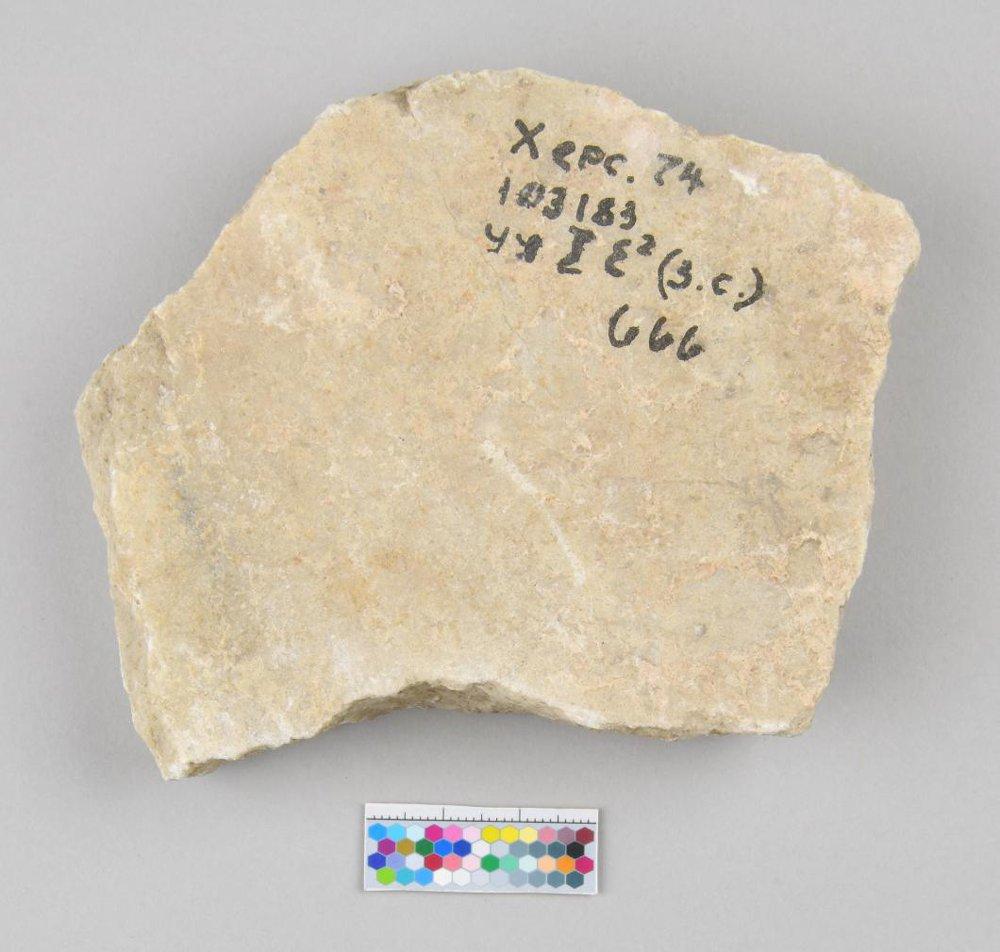 Херс. 74
103183
уч I Е² (з.с.)
666